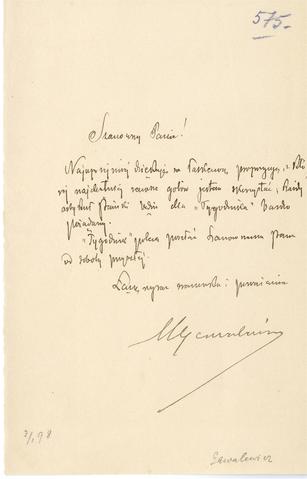 575.
Szanowny Panie!
Najuprzejmiej dziękuję za łaskawą propozycyę, z któ
rej najchętniej zawsze gotów jestem skorzystać. Każdy
artykuł Pański dla "Tygodnika" bardzo
pożądany.
"Tygodnik" polecę posyłać Szanownemu Panu
od soboty przyszłej.
Łączę wyraz szacunku i poważania
MGawalewicz
3/1 98
Gawalewicz